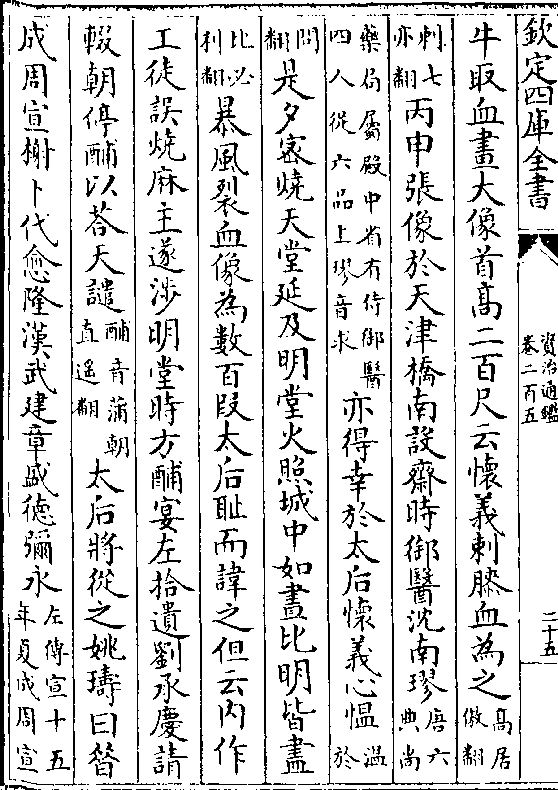 欽定四庫全書
資治通鑑
卷二百五
二十五
牛取血畫大像首高二百尺云懷義刺膝血為之高居
傲翻
刺七
亦翻丙申張像於天津橋南設齋時御醫沈南璆唐六
典尚
藥局屬殿中省有侍御醫
四人從六品上璆音求亦得幸於太后懷義心愠愠於
問
翻是夕密燒天堂延及明堂火照城中如晝比明皆盡
比必
利翻暴風裂血像為數百段太后耻而諱之但云内作
工徒誤燒麻主遂涉明堂時方酺宴左拾遺劉承慶請
輟朝停酺以答天譴酺音蒲朝
直遥翻太后將從之姚璹曰昔
成周宣榭卜代愈隆漢武建章盛德彌永左傳宣十五
年夏成周宣